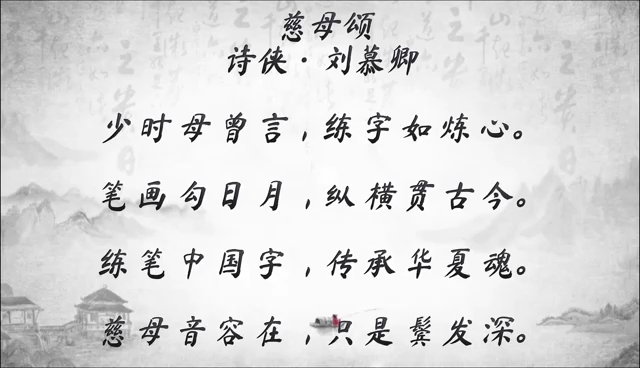 慈母颂
诗侠·刘慕卿
少时母曾言,练字如炼心。
笔画勾日月,纵横贯古今。
练笔中国字,传承华夏魂。
慈母音容在,只是鬓发深。